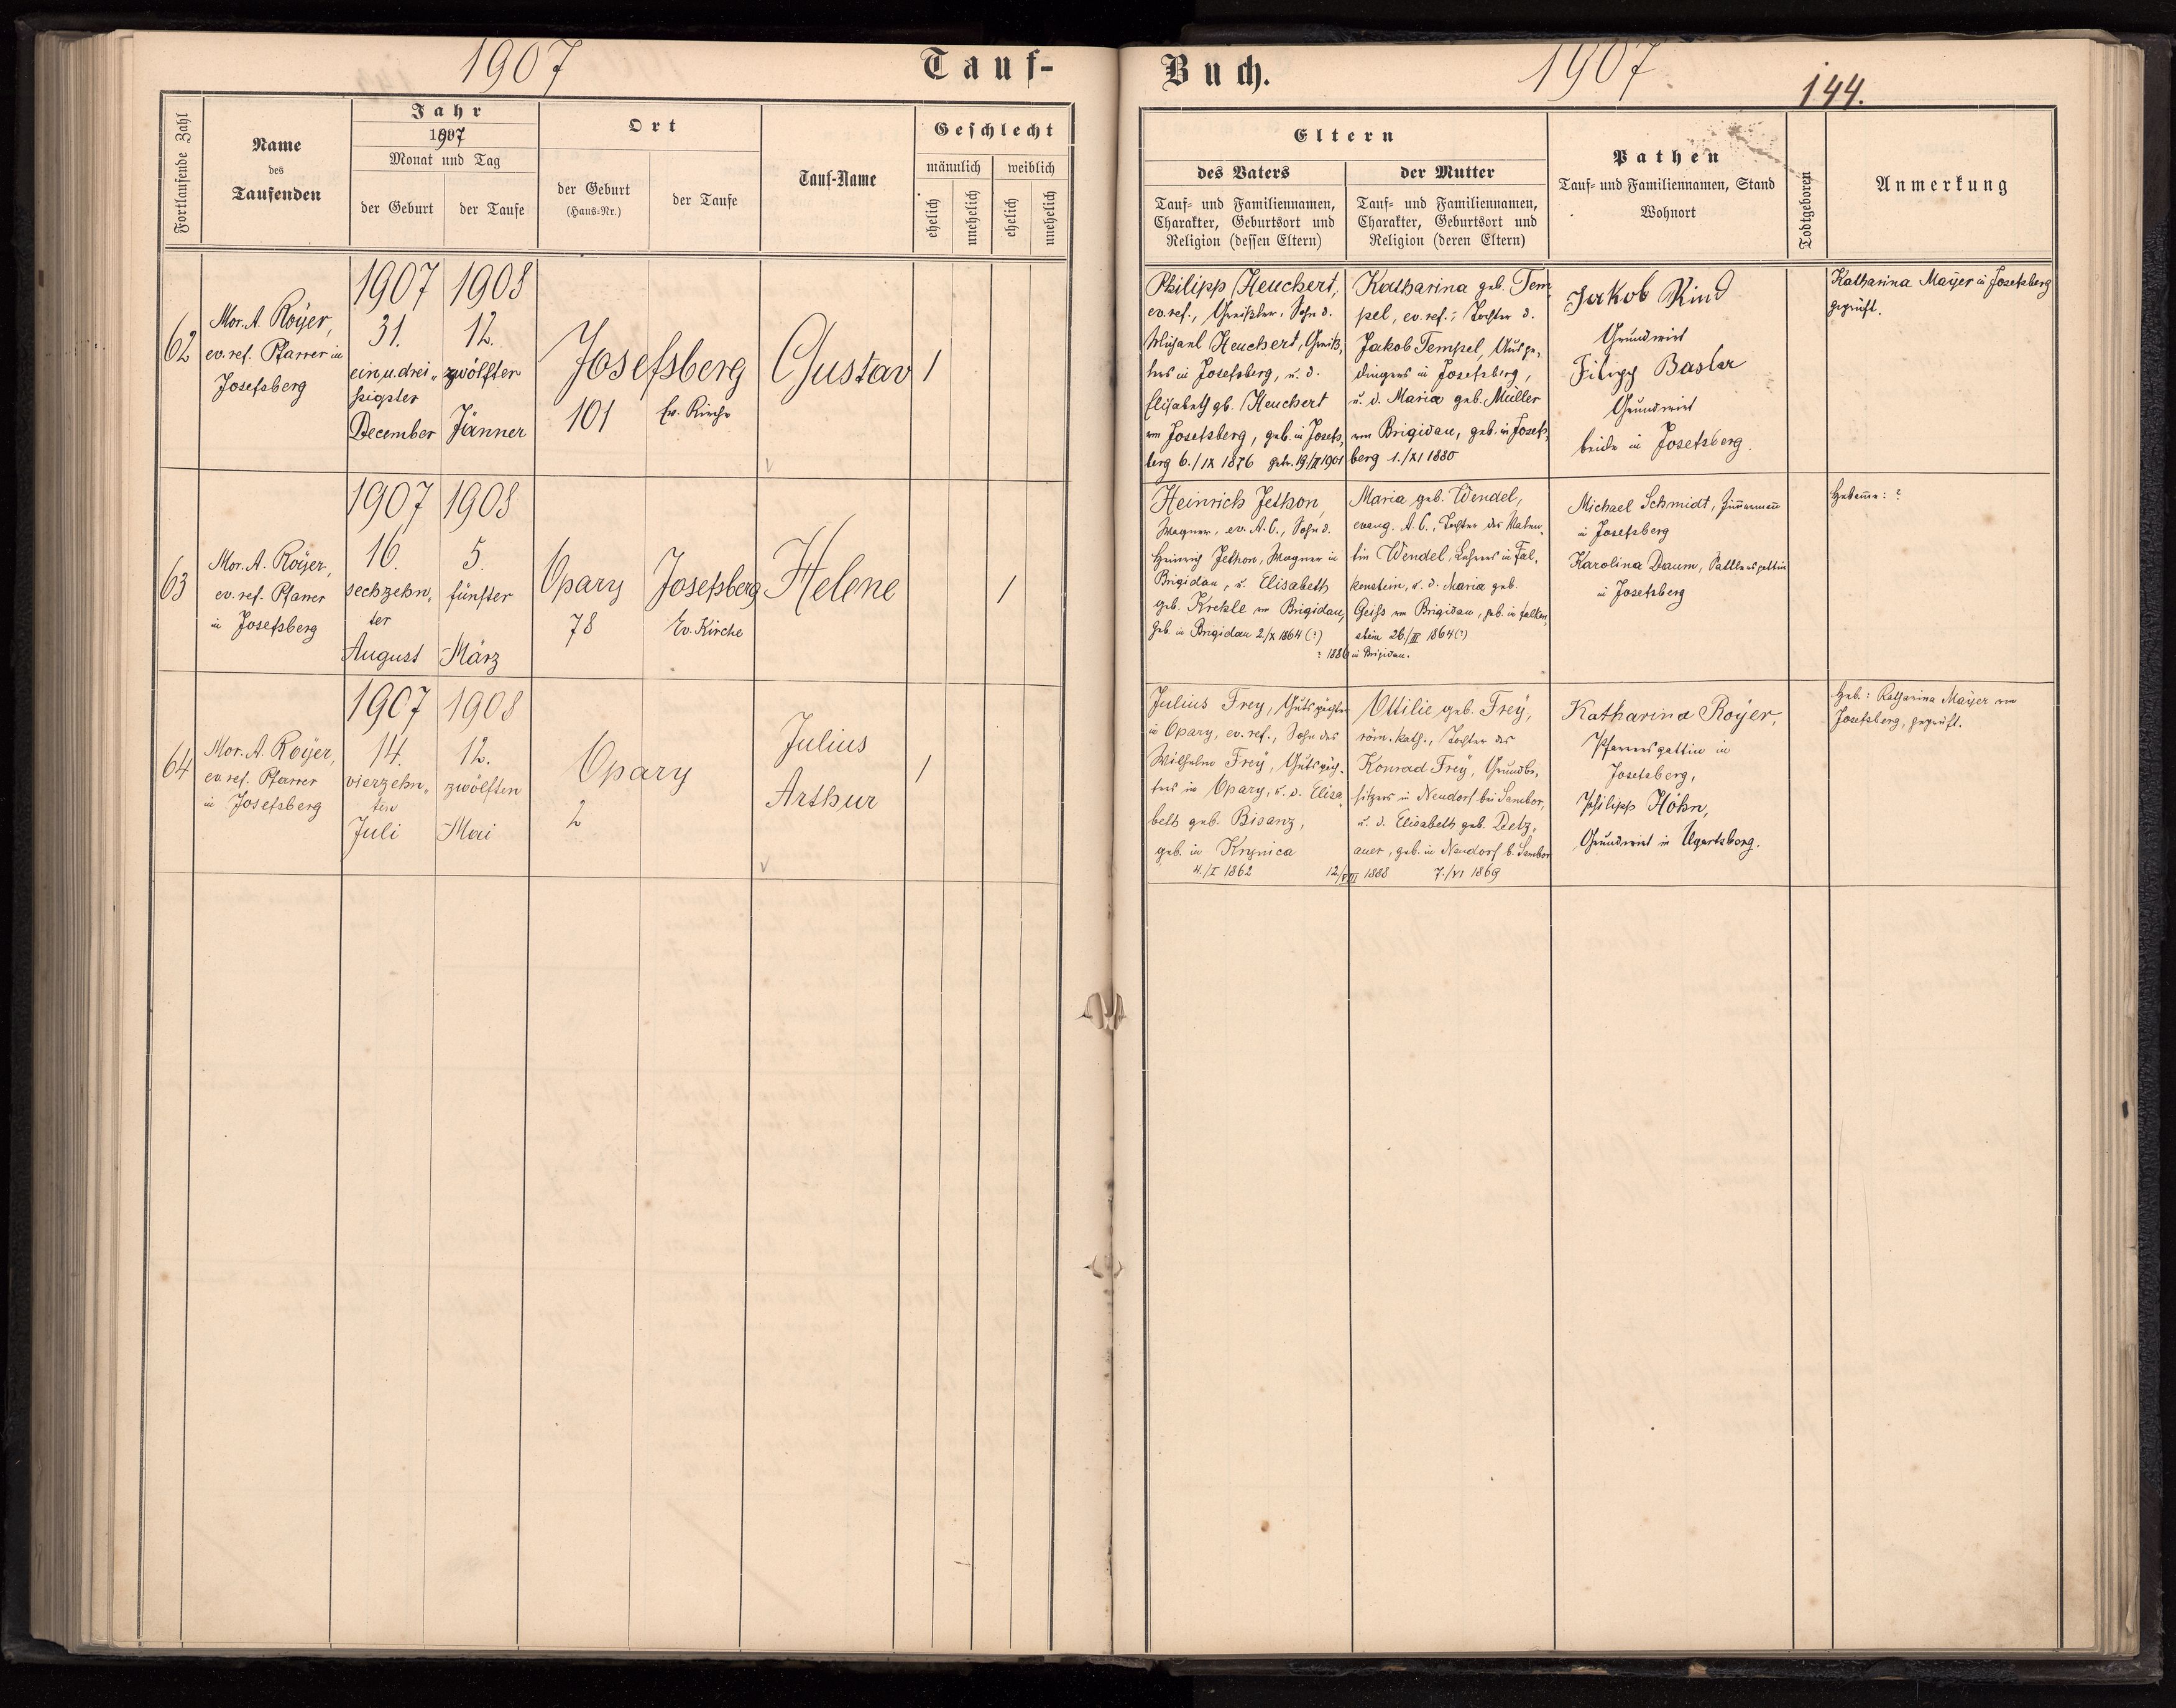 1907
Tauf-
Fortlaufende Zahl
Name
des
Taufenden
Jahr
1907
Monat und Tag
der Geburt
der Taufe
Ort
der Geburt
(Haus-Nr.)
der Taufe
Tauf-Name
Geschlecht
männlich
weiblich
ehelich
unehelich
ehelich
unehelich
62
Mor. A. Royer,
ev. ref. Pfarrer in
Josefsberg
1907
31.
ein u. drei-
ßigster
December
1908
12.
zwölfter
Jänner
Josefsberg
101
Ev. Kirche
Gustav
1
63
Mor. A. Royer,
ev. ref. Pfarrer
in Josefsberg
1907
16.
sechzehn-
ter
August
1908
5.
fünfter
März
Opary
78
Josefsberg
Ev. Kirche
Helene
1
64
Mor. A. Royer,
ev. ref. Pfarrer
in Josefsberg
1907
14.
vierzehn-
ten
Juli
1908
12.
zwölften
Mai
Opary
2
Julius
Arthur
1
Buch.
1907
144.
Eltern
des Vaters
Tauf- und Familiennamen,
Charakter, Geburtsort und
Religion (dessen Eltern)
der Mutter
Tauf- und Familiennamen,
Charakter, Geburtsort und
Religion (deren Eltern)
Pathen
Tauf- und Familiennamen, Stand
Wohnort
Todtgeboren
Anmerkung
Philipp Heuchert,
ev. ref., Greißler, Sohn d.
Michael Heuchert, Greiß-
lers in Josefsberg, u. d.
Elisabeth gb. Heuchert
von Josefsberg, geb. in Josefs-
berg 6./IX 1876 getr. 19/II 1901
Katharina geb. Tem-
pel, ev. ref., Tochter d.
Jakob Tempel, Ausge-
dingers in Josefsberg,
u. d. Maria geb. Müller
von Brigidau, geb. in Josefs-
berg 1./XI 1880
Jakob Rind
Grundwirt
Filipp Basler
Grundwirt
beide in Josefsberg.
Katharina Mayer in Josefsberg
geprüft.
Heinrich Jethon,
Wagner, ev. A. C., Sohn d.
Heinrich Jethon, Wagner in
Brigidau, u. Elisabeth
geb. Krehle von Brigidau,
geb. in Brigidau 2/X 1864 (?)
Maria geb. Wendel,
evang. A. C., Tochter des Valen-
tin Wendel, Lehrers in Fal-
kenstein, u. d. Maria geb.
Geiss von Brigidau, geb. in Falken-
stein 26./III 1864 (?)
in Brigidau.
Michael Schmidt, Zimmermann
in Josefsberg
Karolina Daum, Sattlersgattin
in Josefsberg
Hebamme: ?
Julius Frey, Gutspächter
in Opary, ev. ref., Sohn des
Wilhelm Frey, Gutspäch-
ters in Opary, u. d. Elisa-
beth geb. Bisanz,
geb. in Krynica
4./I 1862
12/VIII 1888
Ottilie geb. Frey,
röm. kath., Tochter des
Konrad Frey, Grundbe-
sitzers in Neudorf bei Sambor,
u. d. Elisabeth geb. Detz-
auer, geb. in Neudorf b. Sambor
7./VI 1869
Katharina Royer,
Pfarrersgattin in
Josefsberg,
Philipp Höhn,
Grundwirt in Ugartsberg.
Heb.: Katharina Mayer von
Josefsberg, geprüft.